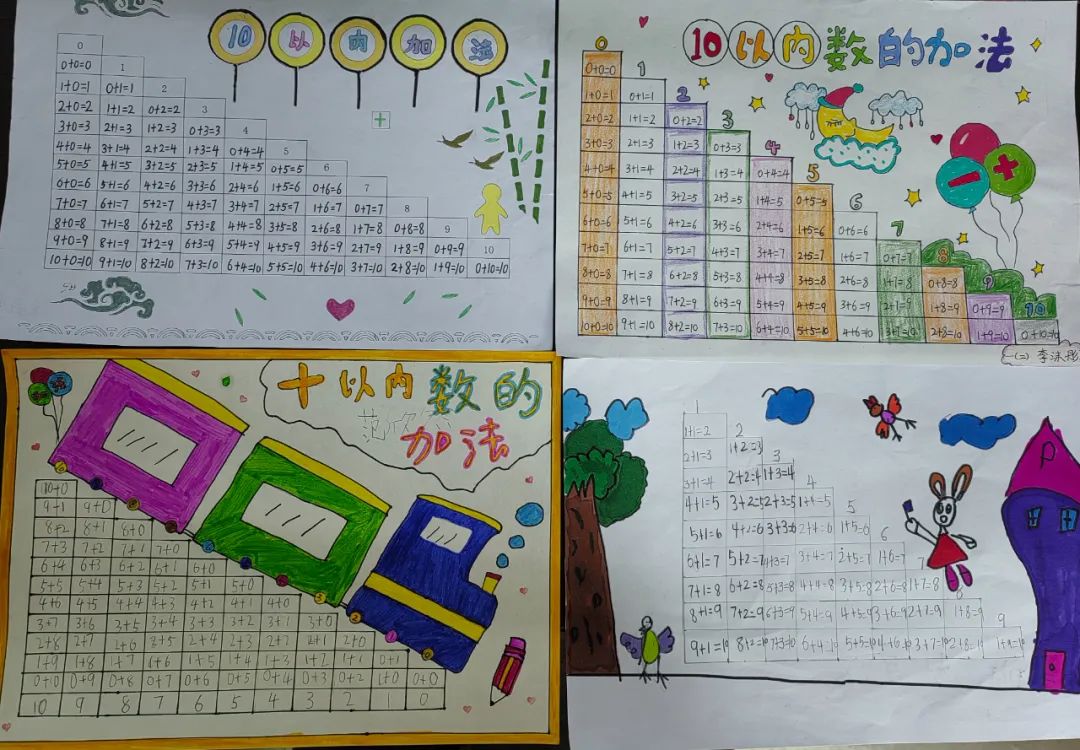 10以内加法
0
0+0=0 1
1+0=1 0+1=1 2
2+0=2 1+1=2 0+2=2 3
3+0=3 2+1=3 1+2=3 0+3=3 4
4+0=4 3+1=4 2+2=4 1+3=4 0+4=4 5
5+0=5 4+1=5 3+2=5 2+3=5 1+4=5 0+5=5 6
6+0=6 5+1=6 4+2=6 3+3=6 2+4=6 1+5=6 0+6=6 7
7+0=7 6+1=7 5+2=7 4+3=7 3+4=7 2+5=7 1+6=7 0+7=7 8
8+0=8 7+1=8 6+2=8 5+3=8 4+4=8 3+5=8 2+6=8 1+7=8 0+8=8 9
9+0=9 8+1=9 7+2=9 6+3=9 5+4=9 4+5=9 3+6=9 2+7=9 1+8=9 0+9=9 10
10+0=10 9+1=10 8+2=10 7+3=10 6+4=10 5+5=10 4+6=10 3+7=10 2+8=10 1+9=10 0+10=10
10以内数的加法
0
0+0=0 1
1+0=1 0+1=1 2
2+0=2 1+1=2 0+2=2 3
3+0=3 2+1=3 1+2=3 0+3=3 4
4+0=4 3+1=4 2+2=4 1+3=4 0+4=4 5
5+0=5 4+1=5 3+2=5 2+3=5 1+4=5 0+5=5 6
6+0=6 5+1=6 4+2=6 3+3=6 2+4=6 1+5=6 0+6=6 7
7+0=7 6+1=7 5+2=7 4+3=7 3+4=7 2+5=7 1+6=7 0+7=7 8
8+0=8 7+1=8 6+2=8 5+3=8 4+4=8 3+5=8 2+6=8 1+7=8 0+8=8 9
9+0=9 8+1=9 7+2=9 6+3=9 5+4=9 4+5=9 3+6=9 2+7=9 1+8=9 0+9=9 10
10+0=10 9+1=10 8+2=10 7+3=10 6+4=10 5+5=10 4+6=10 3+7=10 2+8=10 1+9=10 0+10=10
一(二) 李泳
十以内数的
加法
范欣
10+0
9+1 9+0
8+2 8+1 8+0
7+3 7+2 7+1 7+0
6+4 6+3 6+2 6+1 6+0
5+5 5+4 5+3 5+2 5+1 5+0
4+6 4+5 4+4 4+3 4+2 4+1 4+0
3+7 3+6 3+5 3+4 3+3 3+2 3+1 3+0
2+8 2+7 2+6 2+5 2+4 2+3 2+2 2+1 2+0
1+9 1+8 1+7 1+6 1+5 1+4 1+3 1+2 1+1 0+1
0+10 0+9 0+8 0+7 0+6 0+5 0+4 0+3 0+2 1+0 0+0
10 9 8 7 6 5 4 3 2 1 0
1
1+1=2 2
2+1=3 1+2=3 3
3+1=4 2+2=4 1+3=4 4
4+1=5 3+2=5 2+3=5 1+4=5 5
5+1=6 4+2=6 3+3=6 2+4=6 1+5=6 6
6+1=7 5+2=7 4+3=7 3+4=7 2+5=7 1+6=7 7
7+1=8 6+2=8 5+3=8 4+4=8 3+5=8 2+6=8 1+7=8 8
8+1=9 7+2=9 6+3=9 5+4=9 4+5=9 3+6=9 2+7=9 1+8=9 9
9+1=10 8+2=10 7+3=10 6+4=10 5+5=10 4+6=10 3+7=10 2+8=10 1+9=10